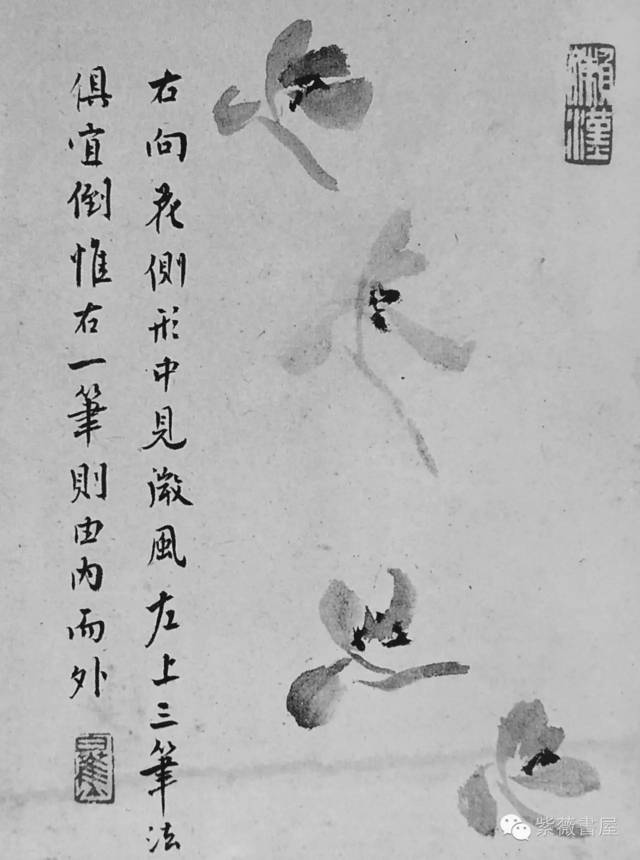 右向花側形中見微風左上三筆法
俱宜倒惟右一筆則由內而外
紫薇書屋